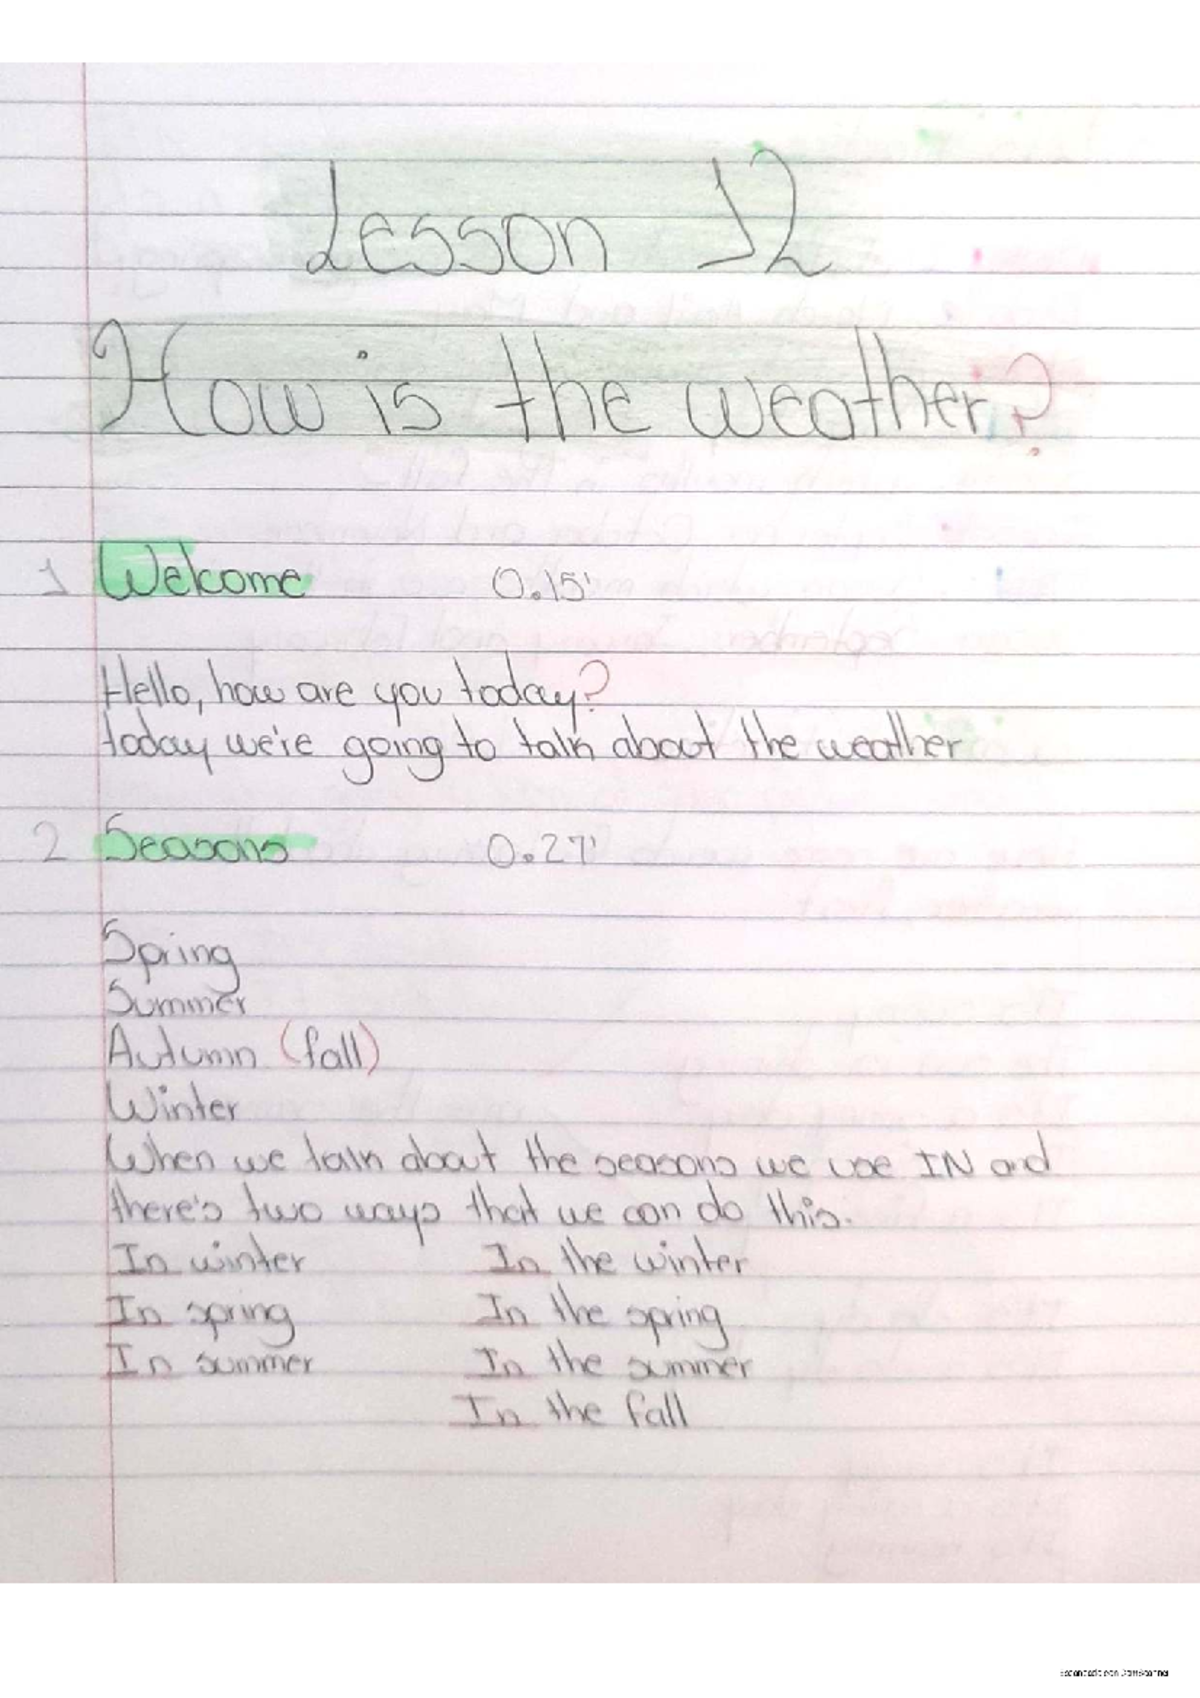 Lesson 12
How is the weather?
1 Welcome 0.15'
Hello, how are you today?
today we're going to talk about the weather
2 Seasons 0.27'
Spring
Summer
Autumn (fall)
Winter
When we talk about the seasons we use IN and
there's two ways that we can do this.
In winter In the winter
In spring In the spring
In summer In the summer
In the fall
Escaneado con CamScanner